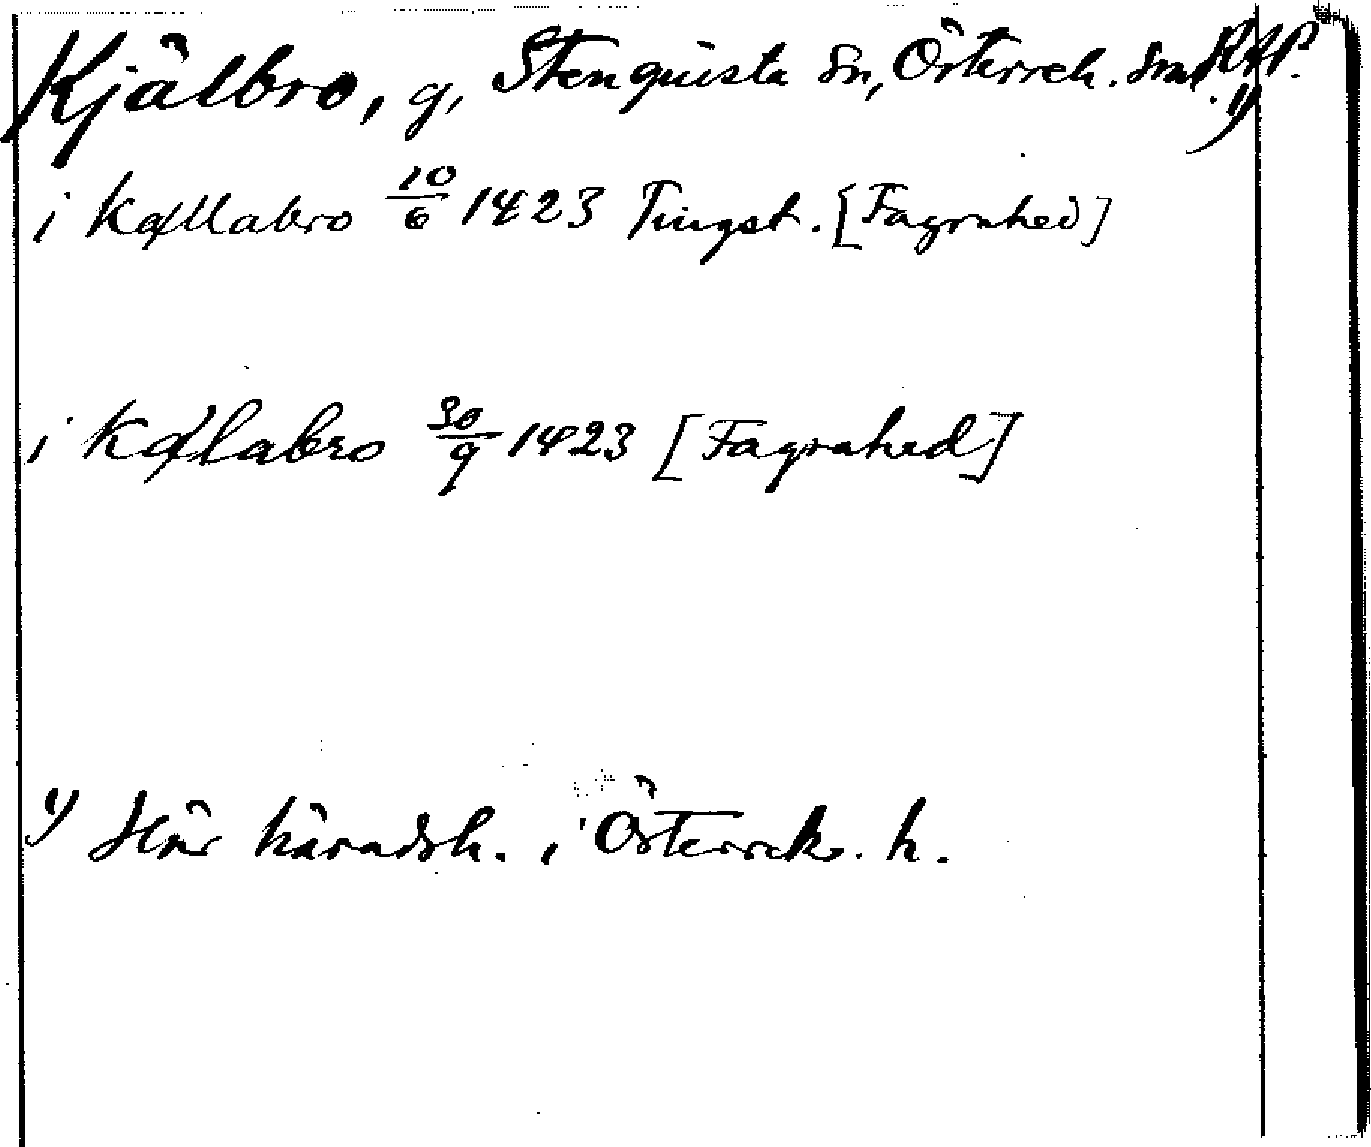 Kjälbro, g, Stenquista sn, Österrek. Sml.
i Kællabro 10/6 1423 Tingst. [Fagrahed]
i Kælabro 30/9 1423 [Fagrahed]
1) Här häradsh. i Österreks. h.